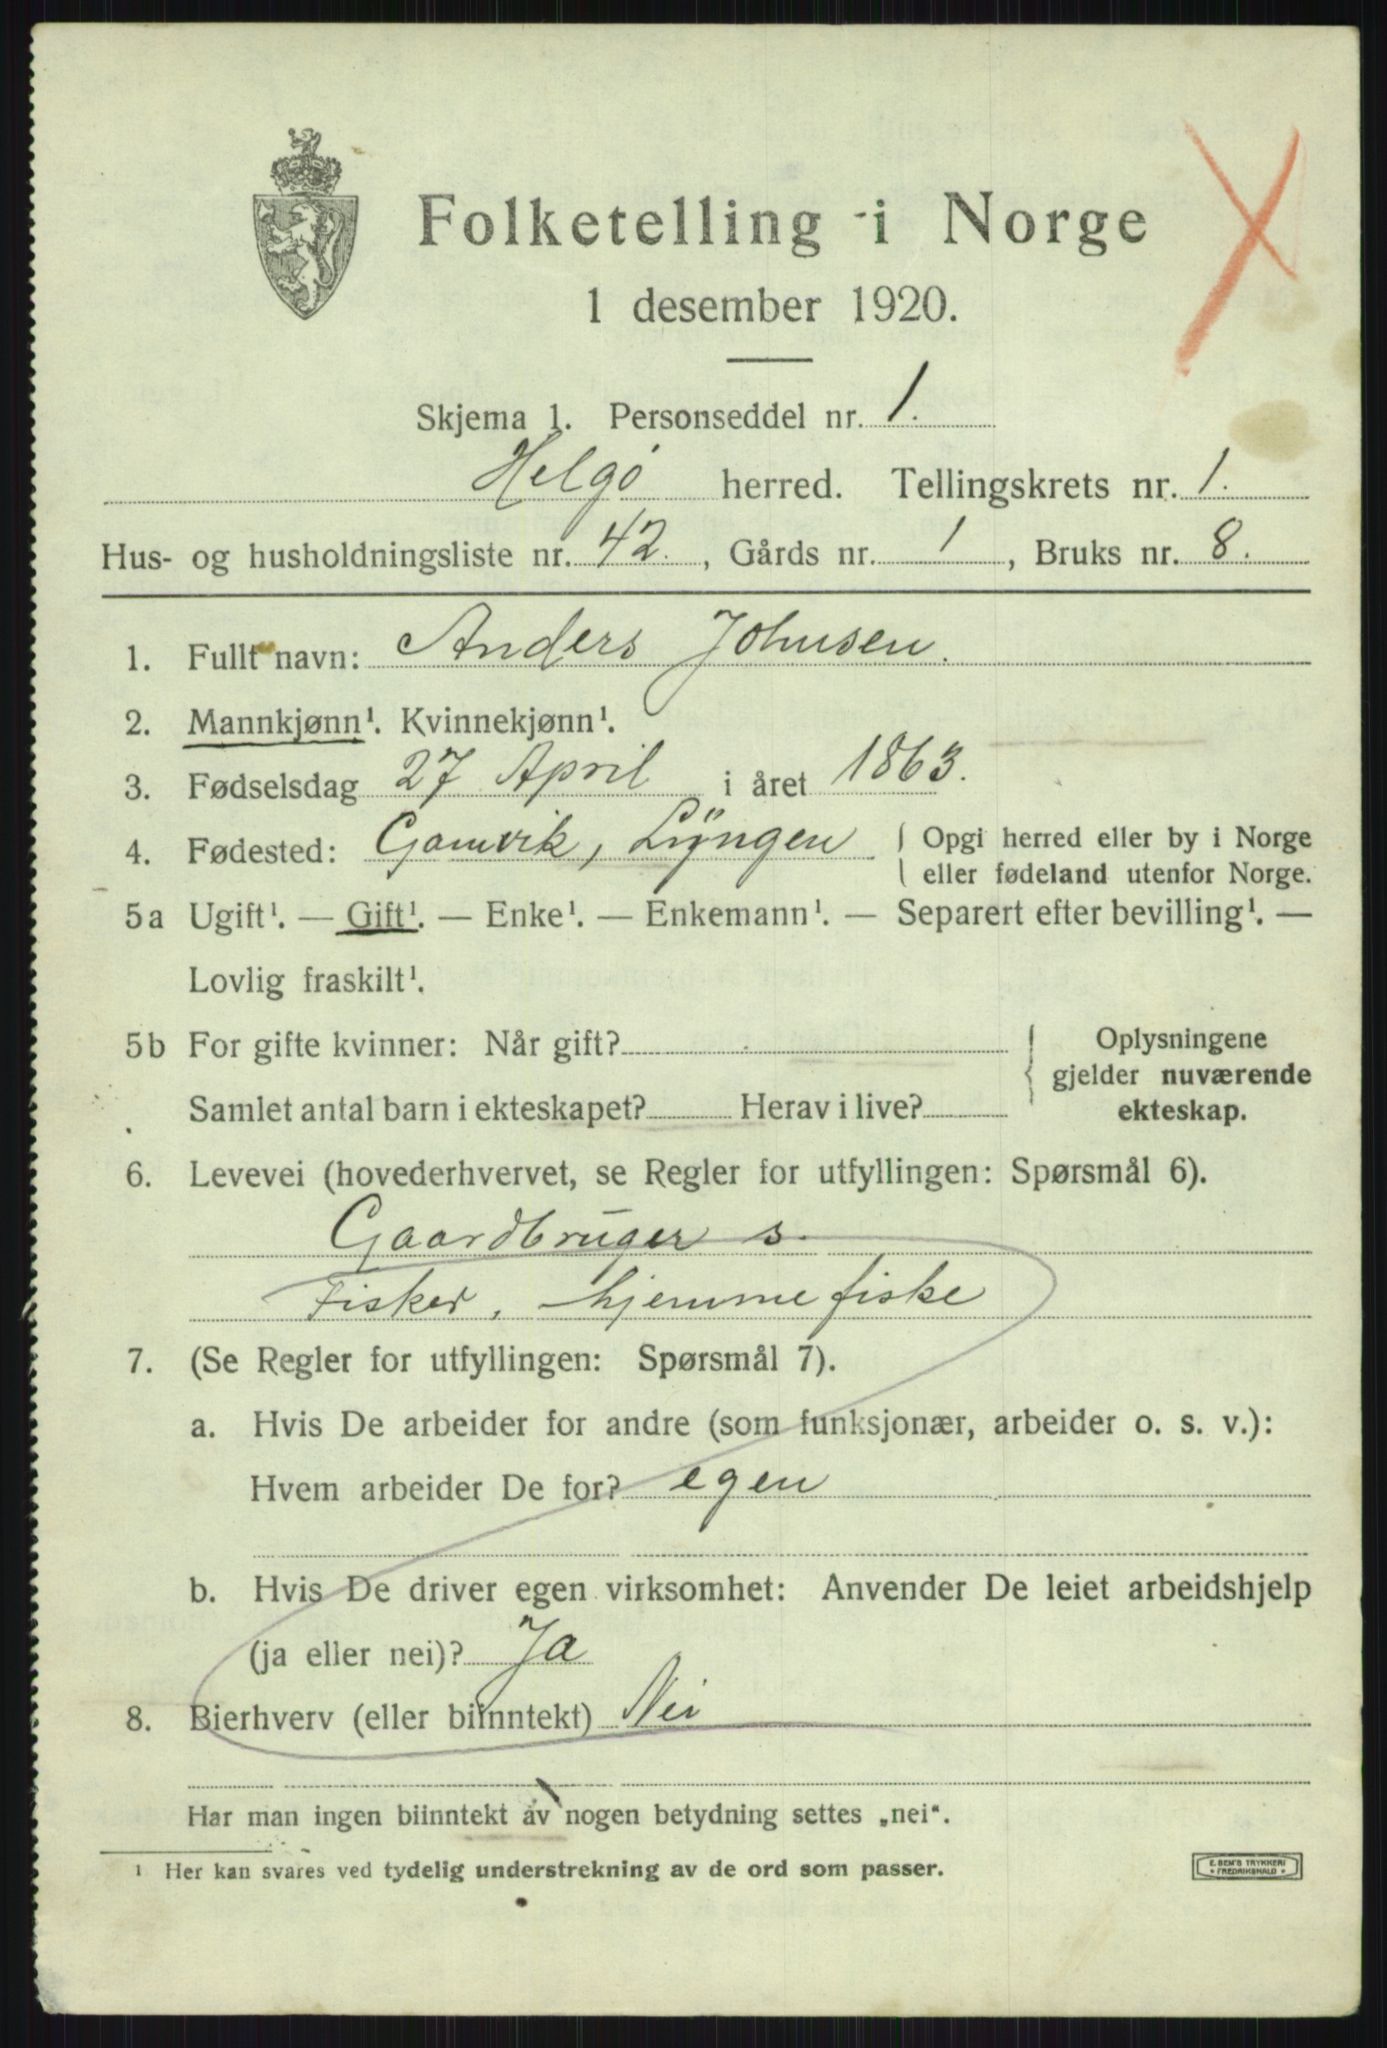 Folketelling i Norge
1 desember 1920.
Skjema 1. Personseddel nr. 1.
Helgö herred. Tellingskrets nr. 1.
Hus- og husholdningsliste nr. 42. , Gårds nr. 1 , Bruks nr. 8.
1. Fullt navn: Anders Johnsen.
2. Mannkjønn¹. Kvinnekjønn¹.
3. Fødselsdag 27 April i året 1863.
4. Fødested: Gamvik, Lÿngen { Opgi herred eller by i Norge
eller fødeland utenfor Norge.
5a Ugift¹. — Gift¹. — Enke¹. — Enkemann¹. — Separert efter bevilling¹. —
Lovlig fraskilt¹.
5b For gifte kvinner: Når gift? { Oplysningene
gjelder nuværende
Samlet antal barn i ekteskapet? Herav i live? ekteskap.
6. Levevei (hovederhvervet, se Regler for utfyllingen: Spørsmål 6).
Gaardbruger s.
Fisker, hjemmefiske
7. (Se Regler for utfyllingen: Spørsmål 7).
a. Hvis De arbeider for andre (som funksjonær, arbeider o. s. v.):
Hvem arbeider De for? egen
b. Hvis De driver egen virksomhet: Anvender De leiet arbeidshjelp
(ja eller nei)? Ja
8. Bierhverv (eller biinntekt) Nei
Har man ingen biinntekt av nogen betydning settes „nei“.
¹ Her kan svares ved tydelig understrekning av de ord som passer.
E. SEM'S TRYKKERI
* FREDRIKSHALD *